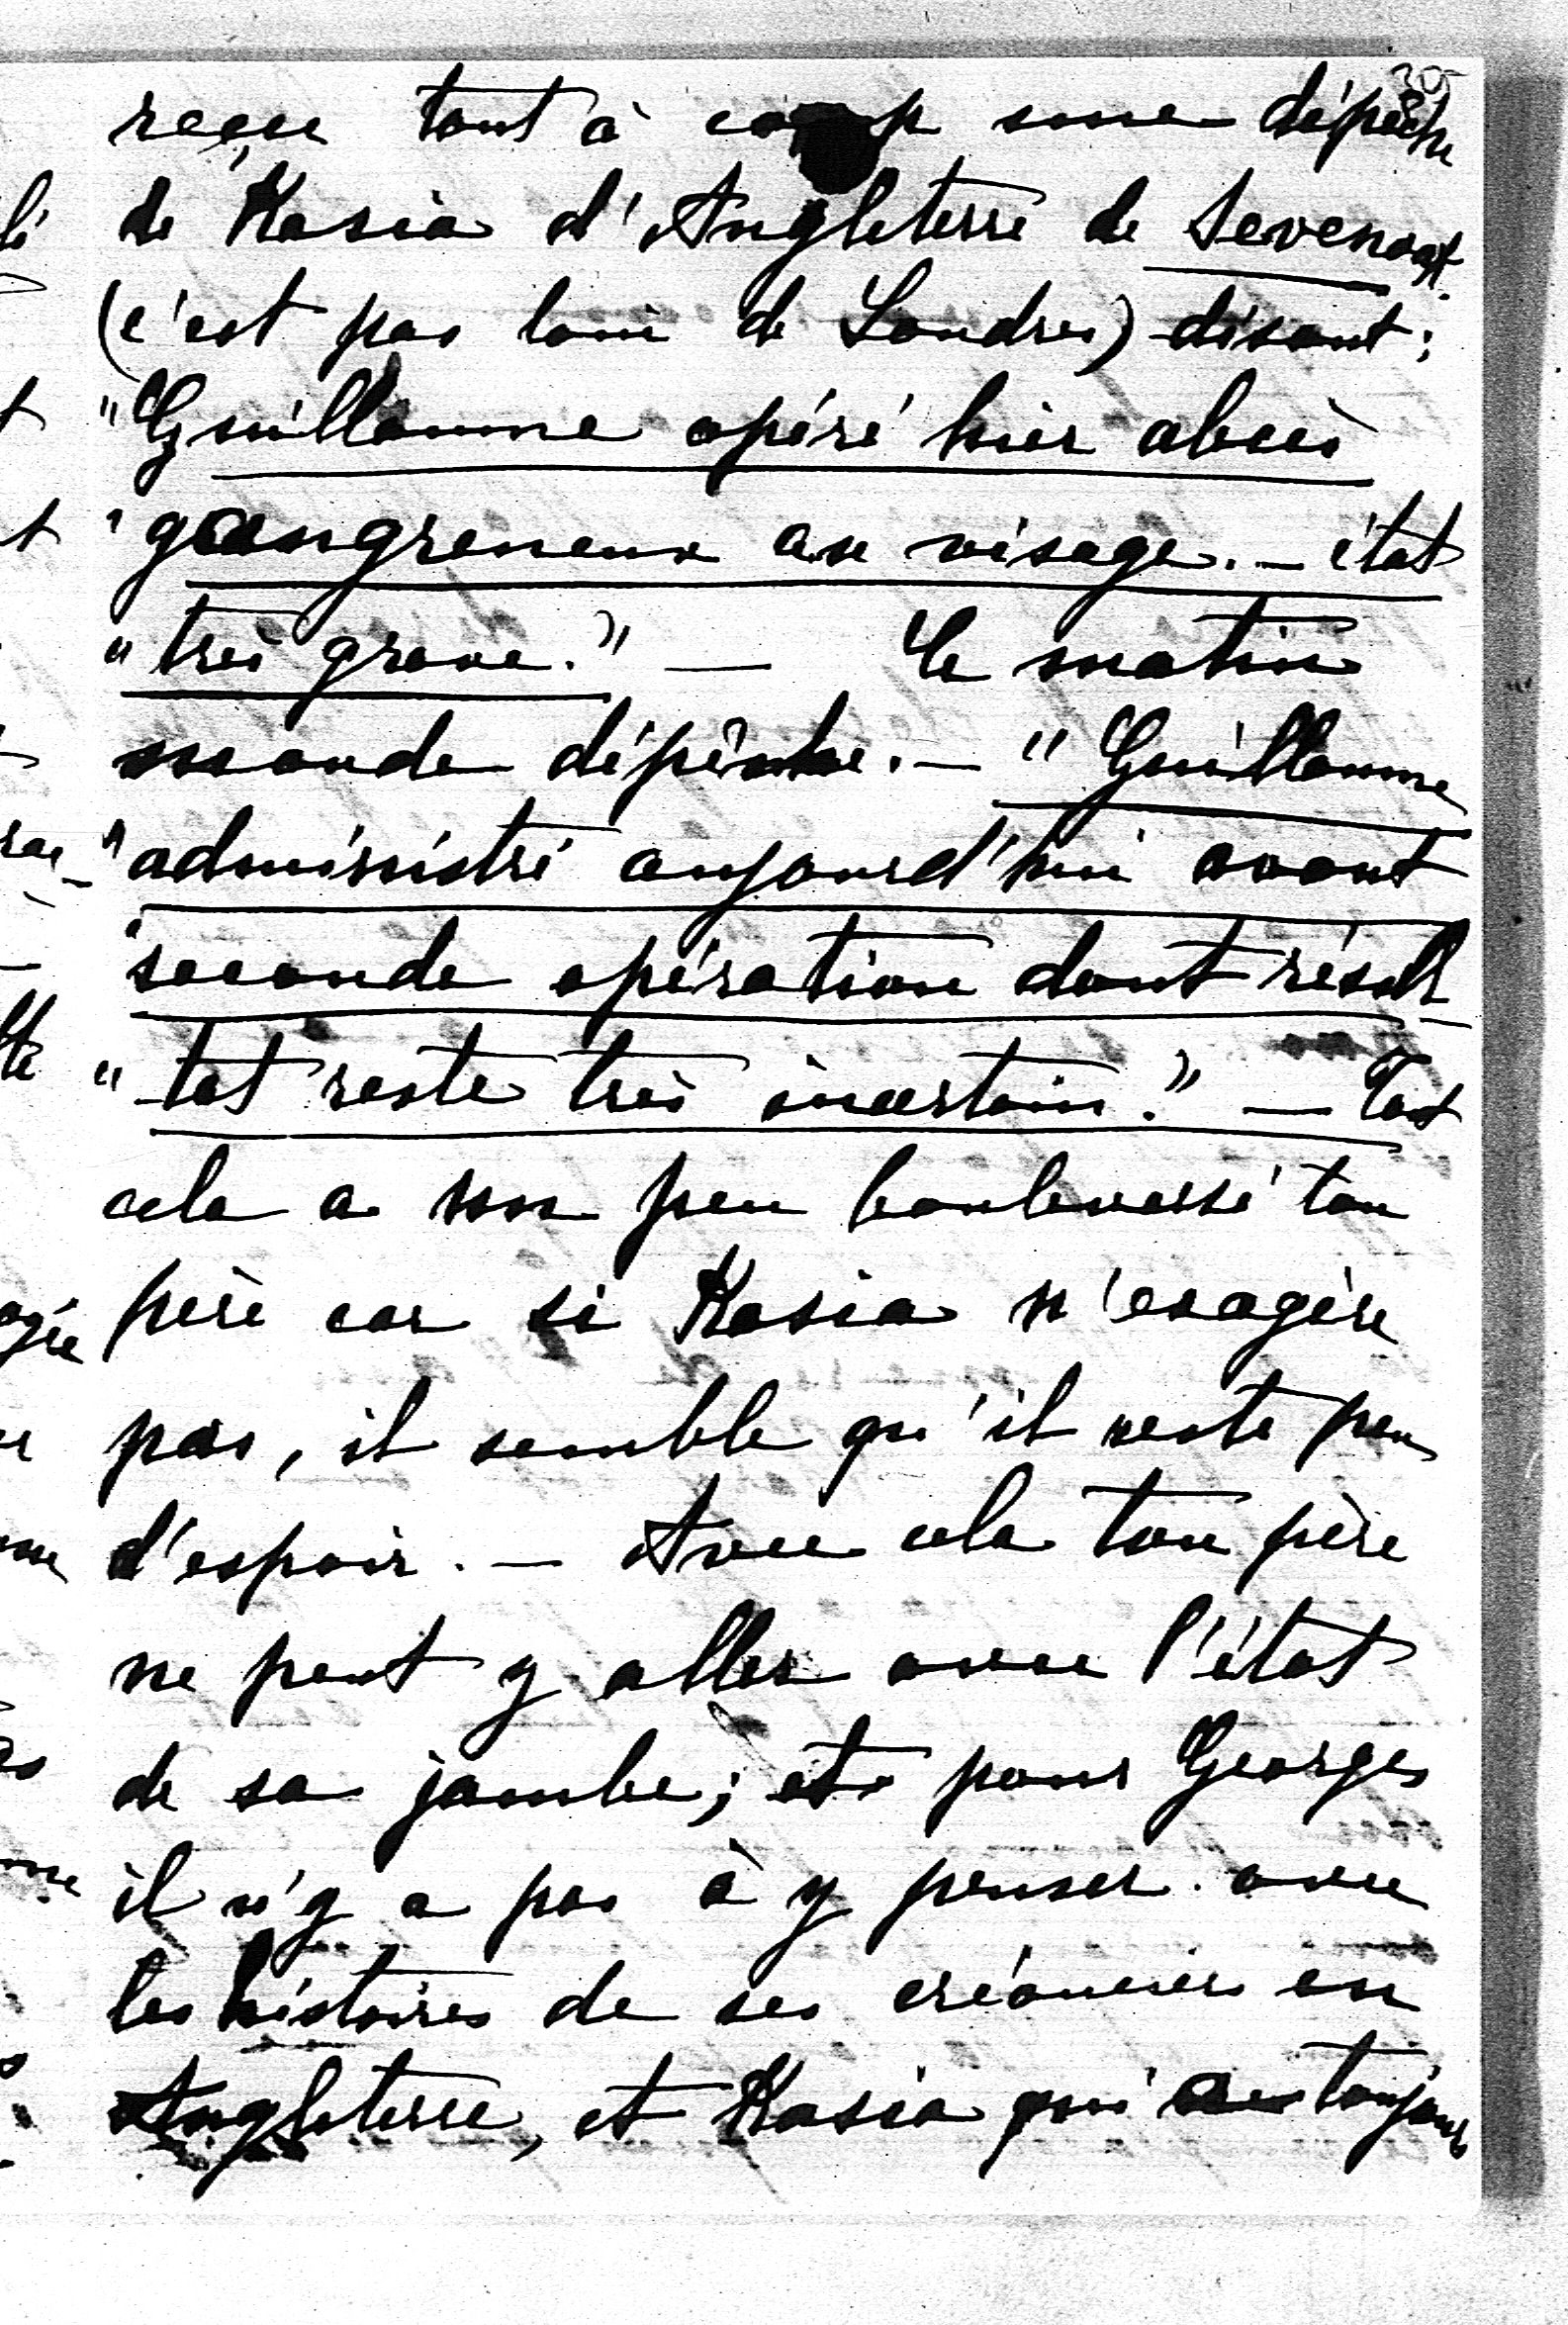 reçu tout à coup une dépêche
de Kasia d'Angleterre de Sevenoax.
(c'est pas loin de Londres) disant;
"Guillaume opéré hier abcès
"gangreneux au visage. — état
"très grave." — Ce matin
seconde dépêche. — "Guillaume
"administré aujourd'hui avant
"seconde opération dont résul
"tat reste très incertain." — Tout
cela a un peu bouleversé ton
père car si Kasia n'exagère
pas, il semble qu'il reste peu
d'espoir. — Avec cela ton père
ne peut y aller avec l'état
de sa jambe; et pour Georges
il n'y a pas à y penser avec
les histoires de ses créanciers en
Angleterre, et Kasia qui toujours